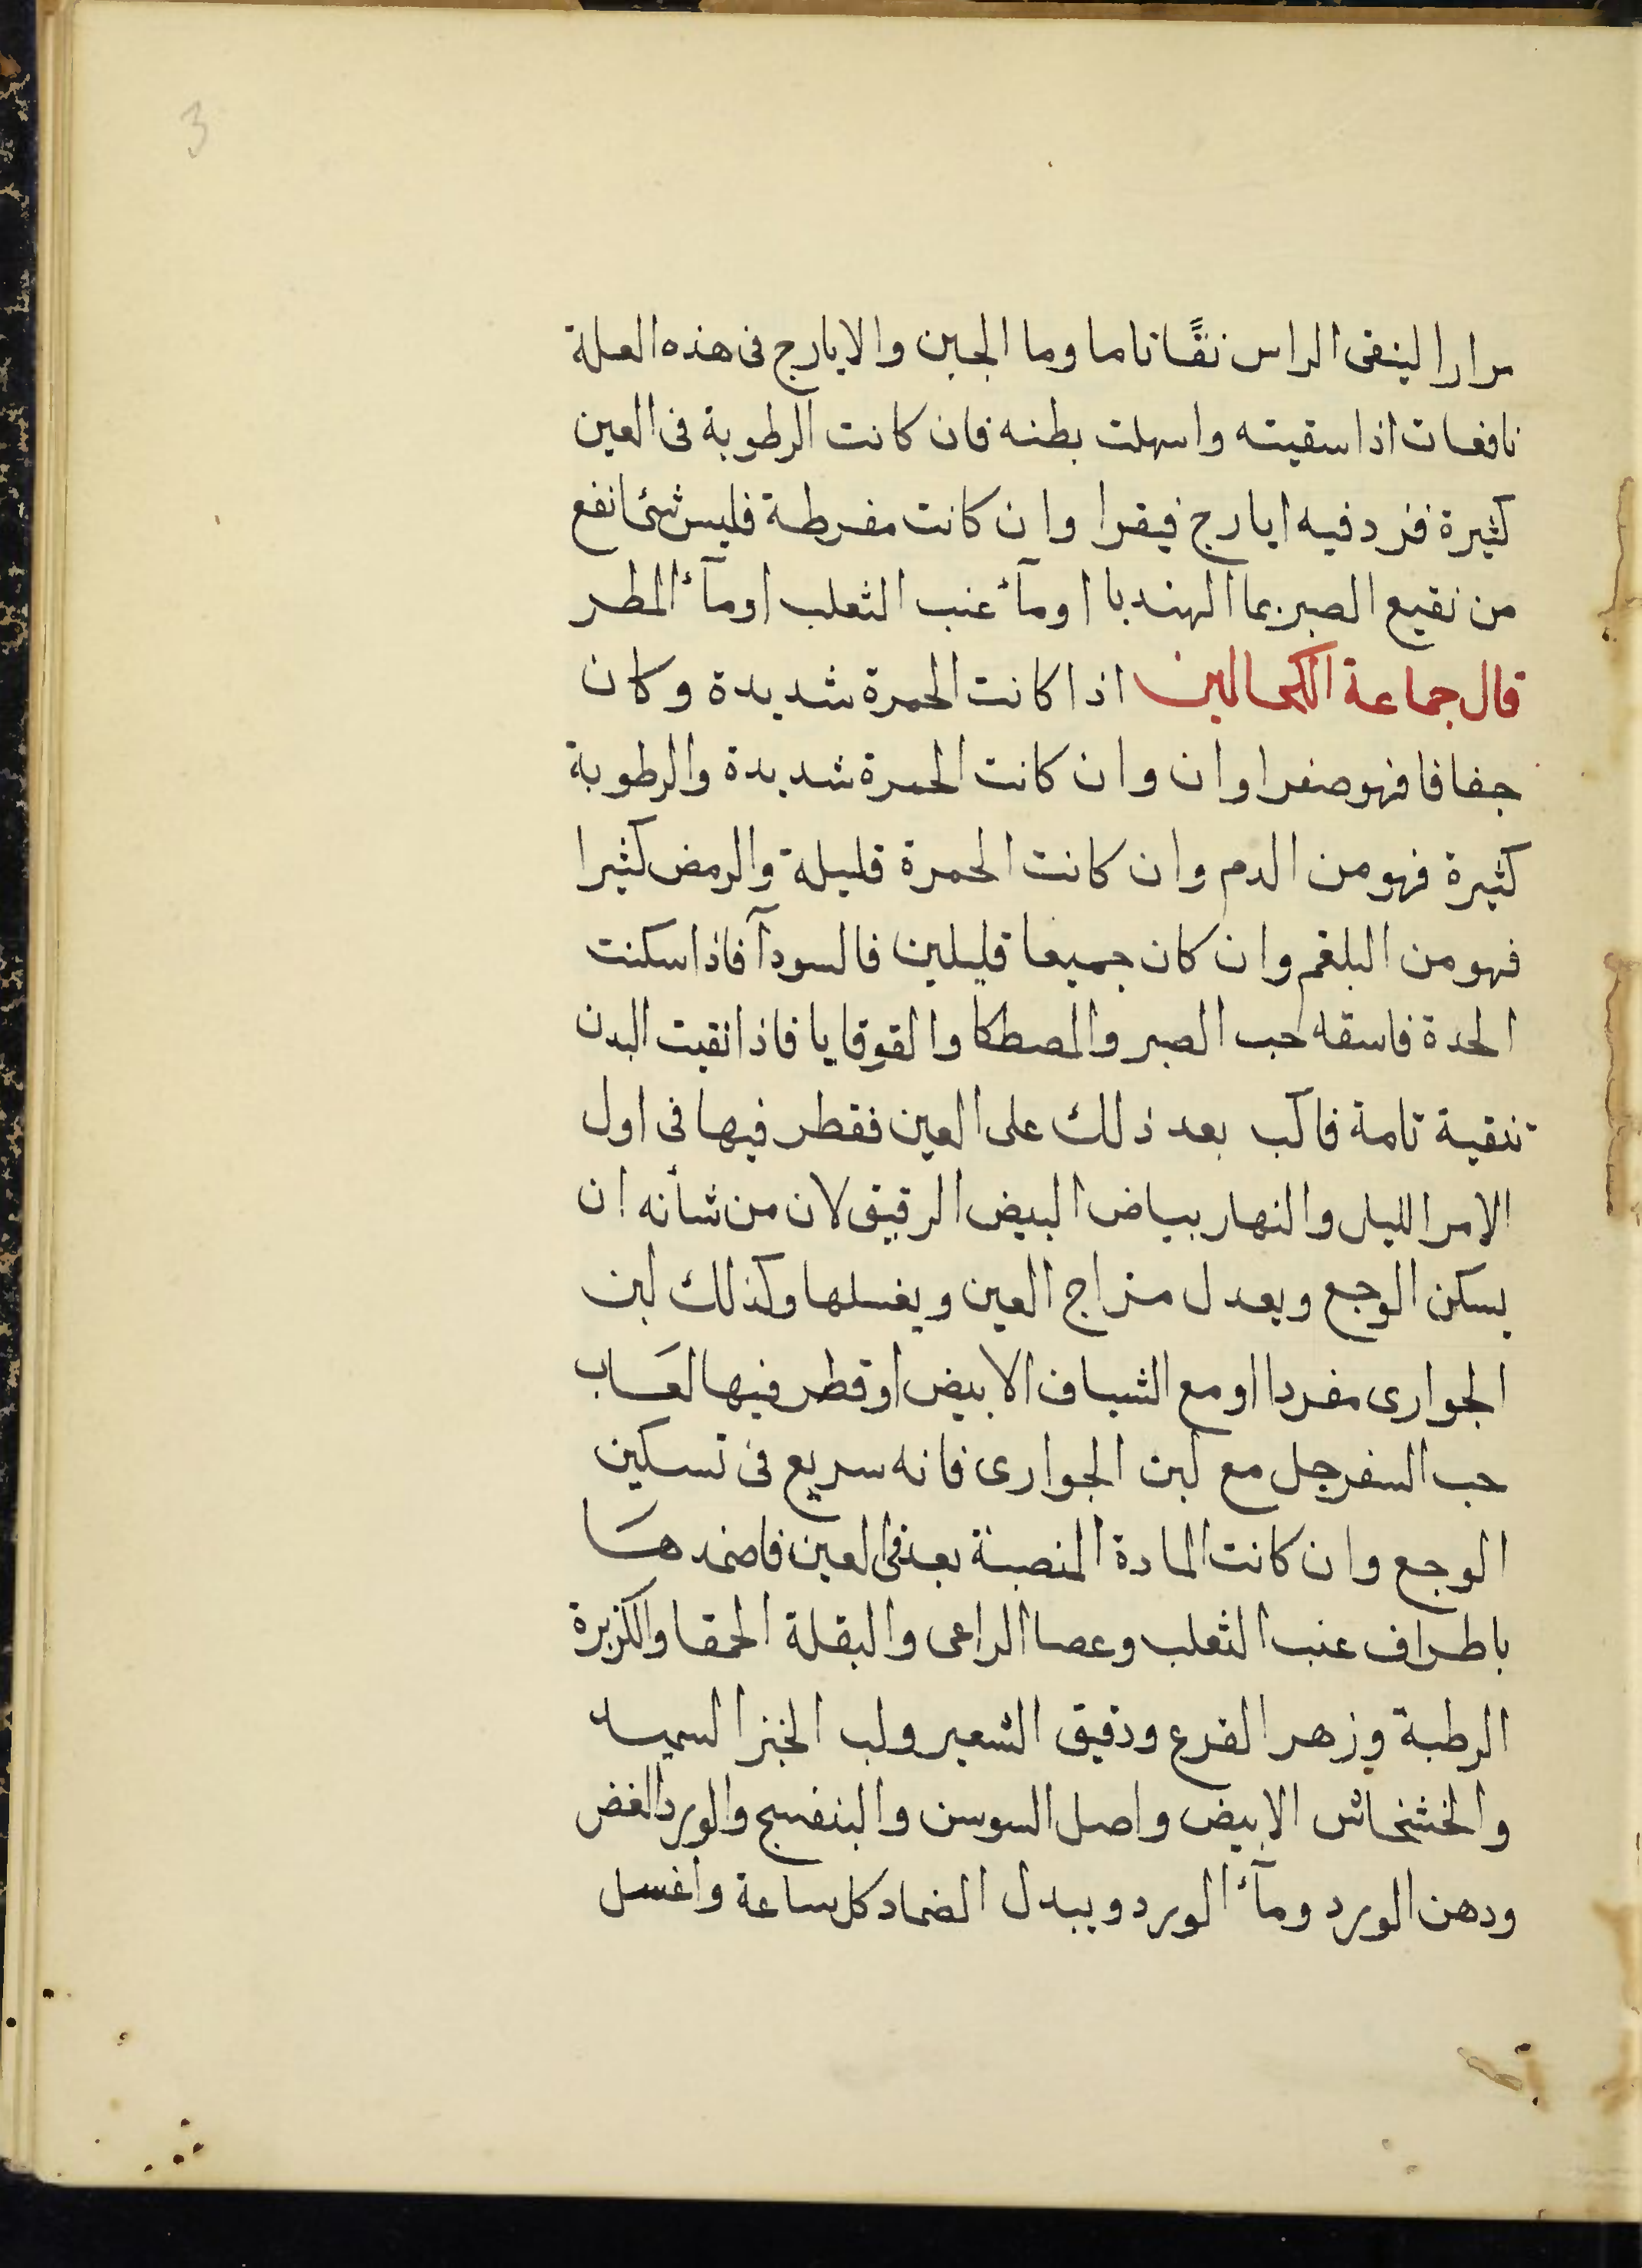 3
مرارا لينقى الراس نقًا تاما وما الجبن والايارج فى هذه العلة
نافعات اذا سقيته واسهلت بطنه فان كانت الرطوبة فى العين
كثيرة فزد فيه ايارج فيقرا وان كانت مفرطة فليس شئ انفع
من نقيع الصبر بما الهندبا اومآء عنب الثعلب اومآء المطر
قال جماعة الكحالين اذا كانت الحمرة شديدة وكان
جفافا فهو صفراوان وان كانت الحمرة شديدة والرطوبة
كثيرة فهو من الدم وان كانت الحمرة قليلة والرمض كثيرا
فهو من البلغم وان كان جميعا قليلين فالسودآ فاذا سكنت
الحدة فاسقه حب الصبر والمصطكا والقوقايا فاذا نقيت البدن
تنقية تامة فاكب بعد ذلك على العين فقطر فيها فى اول
الامر الليل والنهار بياض البيض الرقيق لان من شأنه ان
يسكن الوجع ويعدل مزاج العين ويغسلها وكذلك لبن
الجوارى مفردا او مع الشياف الابيض او قطر فيها لعَاب
حب السفرجل مع لبن الجوارى فانه سريع فى تسكين
الوجع وان كانت المادة المنصبة بعد فى العين فاضمدهَا
باطراف عنب الثعلب وعصا الراعى والبقلة الحمقا والكزبرة
الرطبة وزهر القرع ودقيق الشعير ولب الخبز السميد
والخشخاش الابيض واصل السوسن والبنفسج والورد الغض
ودهن الورد ومآء الورد ويبدل الضماد كل ساعة واغسل